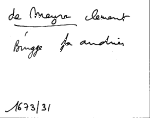 de Meyer clement
Brugge fs andries
1673/31